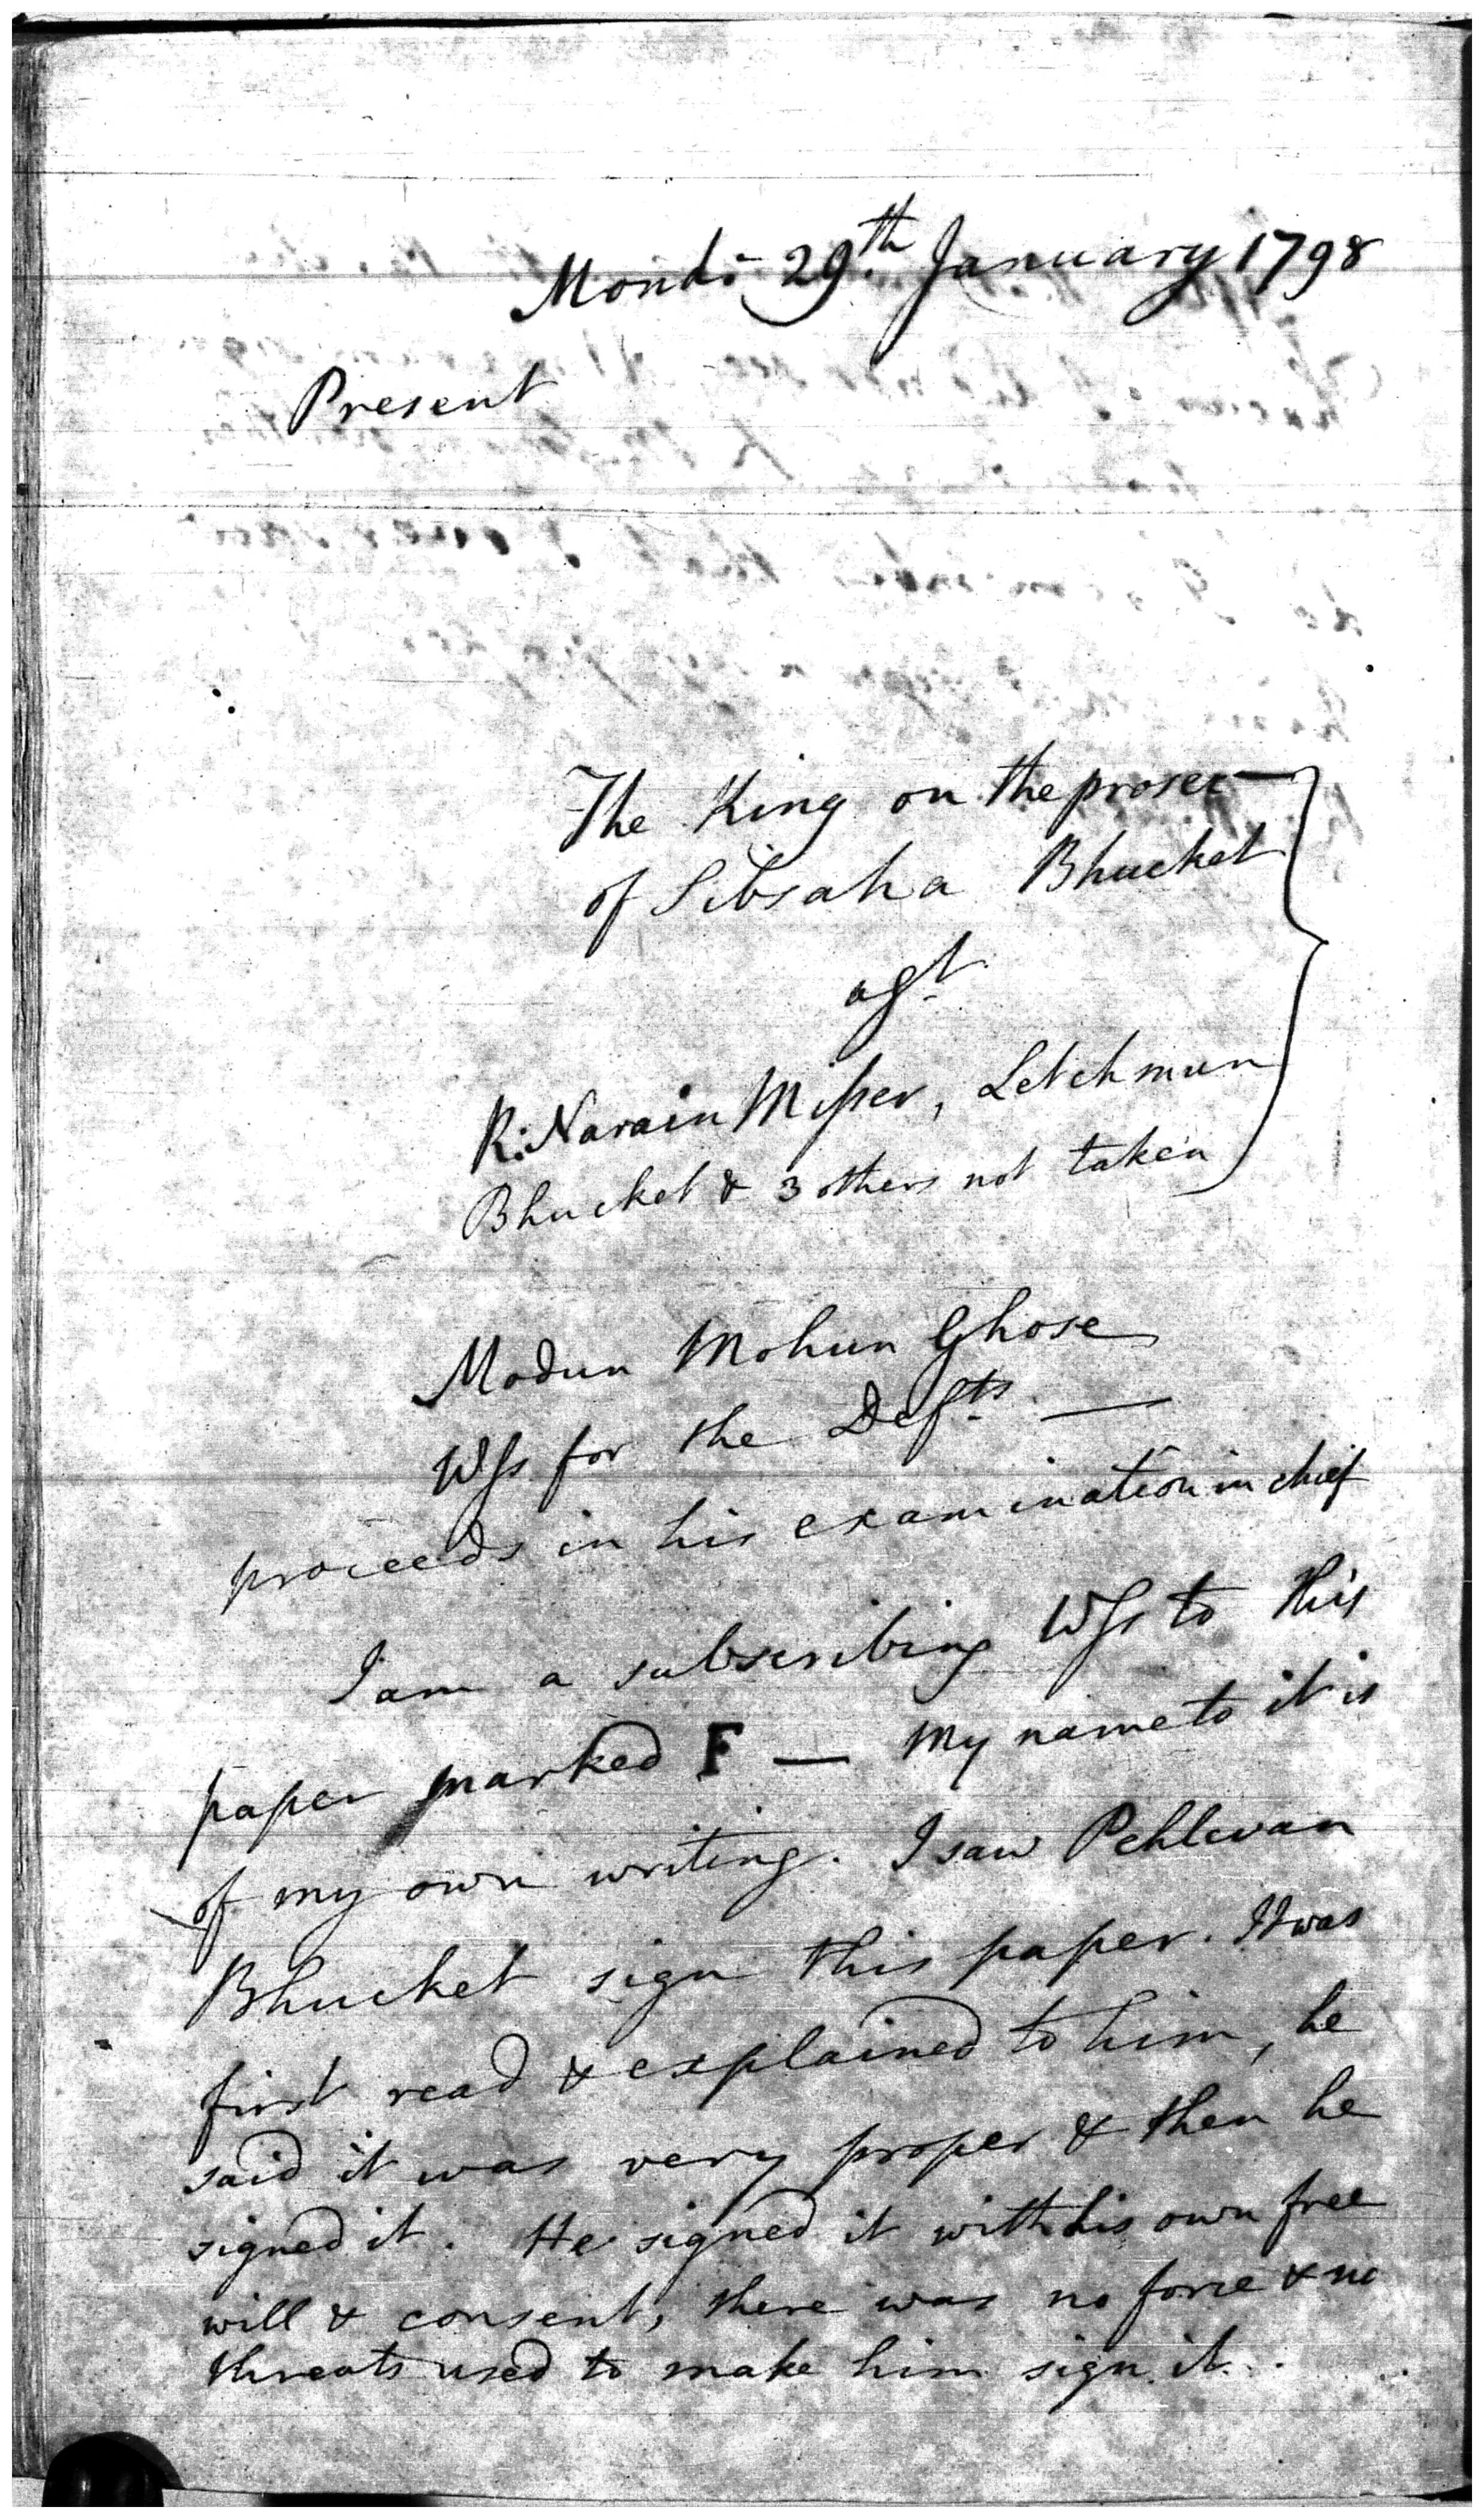 Mond. 29th January 1798
Present
The King on the prosec—
of Sibsaha Bhucket
agt
R: Narain Misser, Letchmun
Bhucket & 3 others not taken
Modun Mohun Ghose
Wss for the Defts —
proceeds in his examination in chief
I am a subscribing Wss to this
paper marked F — My name to it is
of my own writing. I saw Pehlevan
Bhucket sign this paper. It was
first read & explained to him, he
said it was very proper & then he
signed it. He signed it with his own free
will & consent, there was no force & no
threats used to make him sign it.